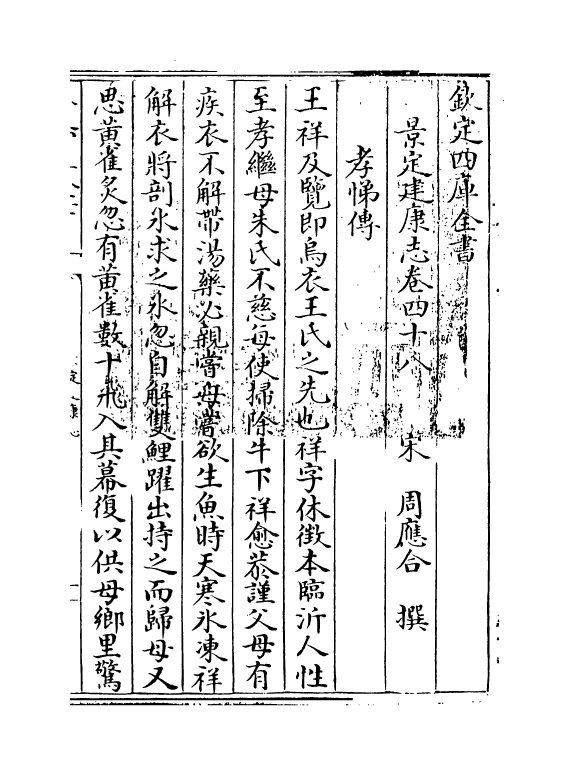 欽定四庫全書
景定建康志卷四十八 宋 周應合 撰
孝悌傳
王祥及覽即烏衣王氏之先也祥字休徴本臨沂人性
至孝繼母朱氏不慈每使掃除牛下祥愈恭謹父母有
疾衣不解帶湯藥必親嘗母嘗欲生魚時天寒氷凍祥
解衣將剖氷求之氷忽自解雙鯉躍出持之而歸母又
思黄雀炙忽有黄雀數十飛入其幕復以供母鄉里驚